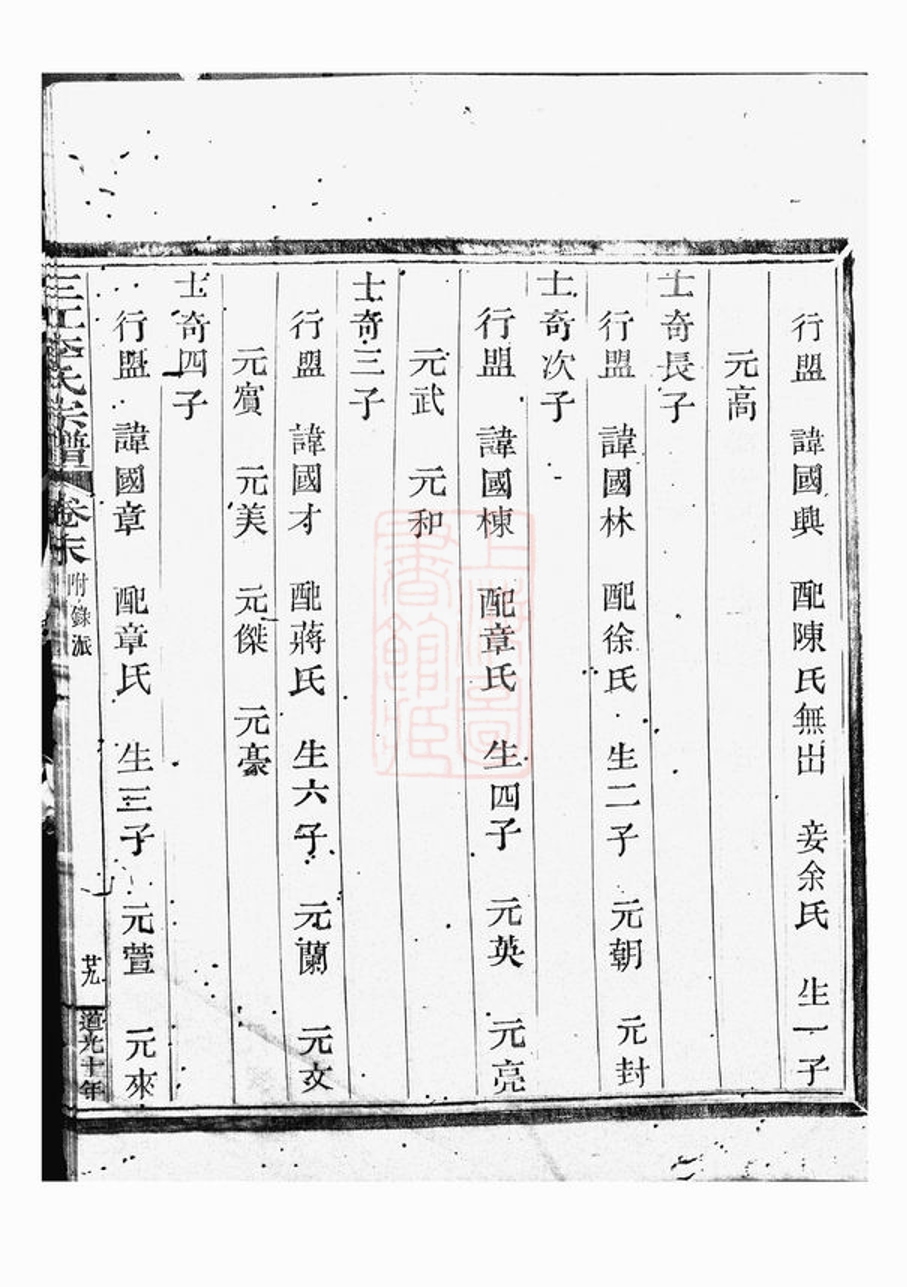 行盟 諱國興 配陳氏無出 妾余氏 生一子
元高
士奇長子
行盟 諱國林 配徐氏 生二子 元朝 元封
士奇次子
行盟 諱國棟 配章氏 生四子 元英 元亮
元武 元和
士奇三子
行盟 諱國才 配蔣氏 生六子 元蘭 元文
元賔 元美 元傑 元豪
士奇四子
行盟 諱國章 配章氏 生三子 元萱 元來
三江李氏宗譜 卷末 附錄派 廿九 道光十年
上海圖書館藏